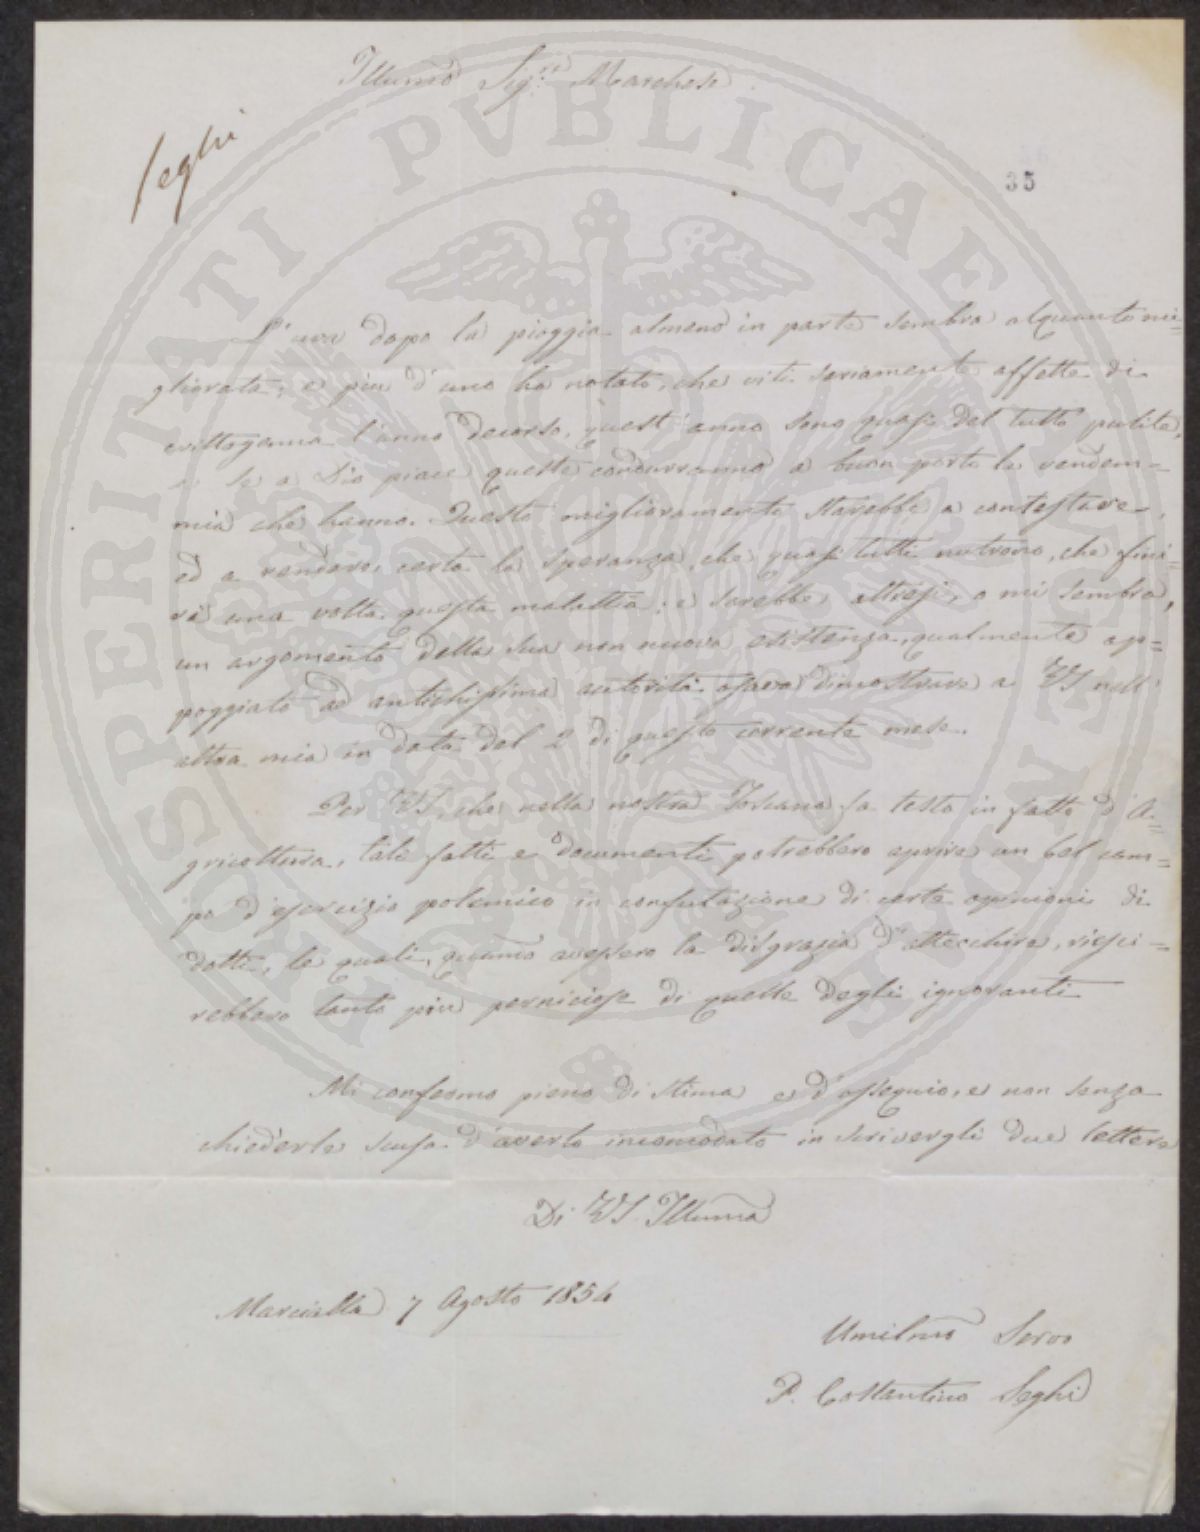 Illumo Sigre Marchese
Seghi
35
L'uva dopo la pioggia almeno in parte sembra alquanto mi=
gliorata, e più d'uno ha notato, che viti seriamente affette di
crittogama l'anno decorso, quest'anno sono quasi del tutto pulite,
e se a Dio piace queste condurranno a buon porto la vendem=
mia che hanno. Questo miglioramento starebbe a contestare,
ed a rendere certa la speranza, che quasi tutti nutrono, che fini=
rà una volta questa malattia; e sarebbe altresì, a mi sembra,
un argomento della sua non nuova esistenza, qualmente ap=
poggiato ad antichissima autorità osavo dimostrare a VS nell'
altra mia in data del 2 di questo corrente mese.
Per VS, che nella nostra Toscana fa testo in fatto d'A=
gricoltura, tali fatti e documenti potrebbero aprire un bel cam=
po d'esercizio polemico in confutazione di certe opinioni di
dotti, le quali, quando avessero la disgrazia d'attecchire, riesci=
rebbero tanto più perniciose di quelle degli ignoranti
Mi confermo pieno di stima e d'ossequio, e non senza
chiederle scusa d'averlo incomodato in scrivergli due lettere
Di VS. Illuma
Marcialla 7 Agosto 1854
Umilmo Servo
P. Costantino Seghi
PROSPERITATI PVBLICAE AVGENDAE